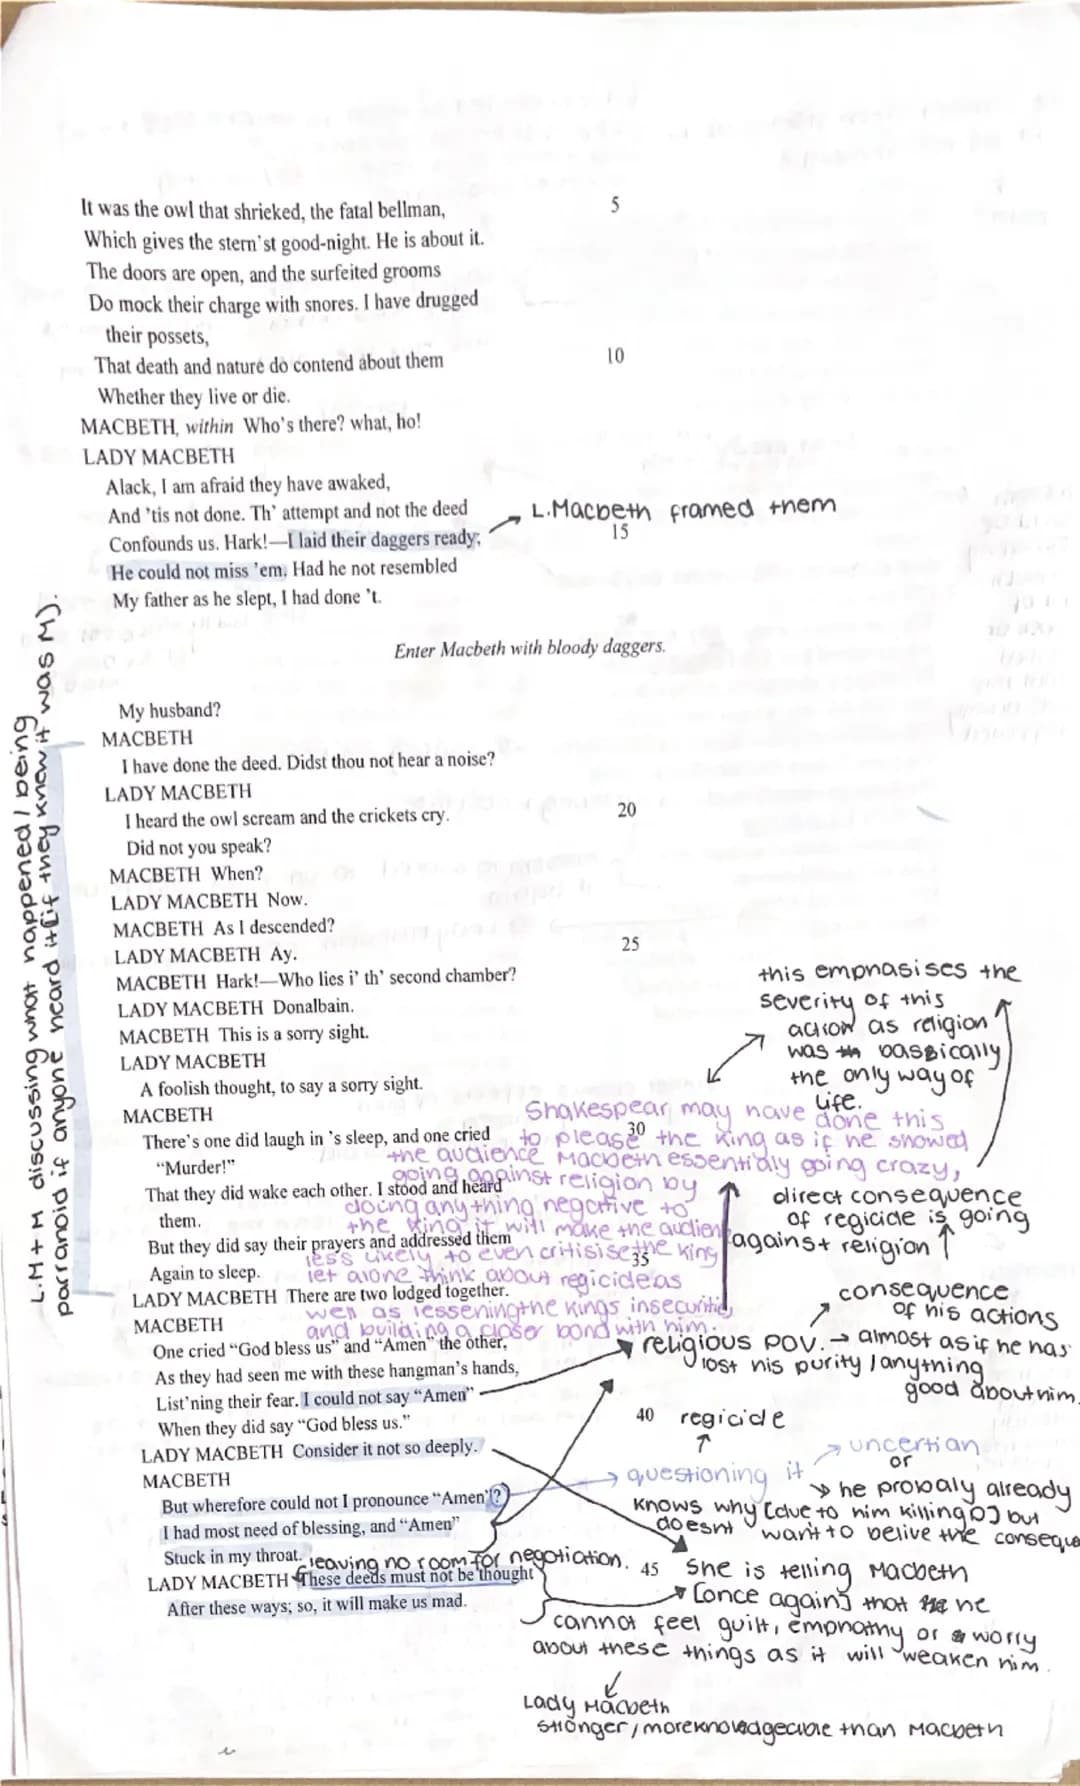 It was the owl that shrieked, the fatal bellman, 5
Which gives the stern'st good-night. He is about it.
The doors are open, and the surfeited grooms
Do mock their charge with snores. I have drugged
their possets,
That death and nature do contend about them 10
Whether they live or die.
MACBETH, within Who's there? what, ho!
LADY MACBETH
Alack, I am afraid they have awaked,
And 'tis not done. Th' attempt and not the deed
Confounds us. Hark!—I laid their daggers ready; 15
He could not miss 'em. Had he not resembled
My father as he slept, I had done 't.
L.Macbeth framed them
Enter Macbeth with bloody daggers.
My husband?
MACBETH
I have done the deed. Didst thou not hear a noise?
LADY MACBETH
I heard the owl scream and the crickets cry. 20
Did not you speak?
MACBETH When?
LADY MACBETH Now.
MACBETH As I descended?
LADY MACBETH Ay. 25
MACBETH Hark!—Who lies i' th' second chamber?
LADY MACBETH Donalbain.
MACBETH This is a sorry sight.
LADY MACBETH
A foolish thought, to say a sorry sight.
MACBETH
There's one did laugh in 's sleep, and one cried 30
"Murder!"
That they did wake each other. I stood and heard
them.
But they did say their prayers and addressed them 35
Again to sleep.
LADY MACBETH There are two lodged together.
MACBETH
One cried "God bless us" and "Amen" the other,
As they had seen me with these hangman's hands,
List'ning their fear. I could not say "Amen"
When they did say "God bless us." 40
LADY MACBETH Consider it not so deeply.
MACBETH
But wherefore could not I pronounce "Amen"?
I had most need of blessing, and "Amen"
Stuck in my throat.
LADY MACBETH These deeds must not be thought 45
After these ways; so, it will make us mad.
L.M + M discussing what happened / being
parranoid if anyone heard it (if they knew it was M).
this emphasises the
severity of this
action as religion
was th bassically
the only way of
life.
Shakespear may have done this
to please the king as if he showed
the audience Macbeth essentialy going crazy,
going against religion by
doing anything negative to
the king it will make the audien
less likely to even critisise the king
let alone think about regicide as
well as lessening the kings insecurities
and building a closer bond with him.
direct consequence
of regicide is going
against religion
consequence
of his actions
religious POV. → almost as if he has
lost his purity / anything
good about him.
regicide
questioning it
uncertian
or
he probaly already
knows why [due to him killing D] but
doesnt want to belive the consequ
leaving no room for negotiation.
She is telling Macbeth
[once again] that he
cannot feel guilt, emphathy or worry
about these things as it will weaken him.
Lady Macbeth
stronger / more knowledgeable than Macbeth